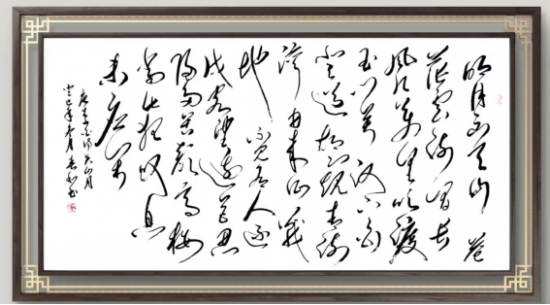 明月出天山 苍
茫云海间长
风几万里吹度
玉门关 汉下白
登道 胡窥青海
湾 由来征战
地 不见有人还
戍客望边色思
归多苦颜高楼
当此夜叹息
未应闲
唐李白诗关山月
癸巳年冬月 书